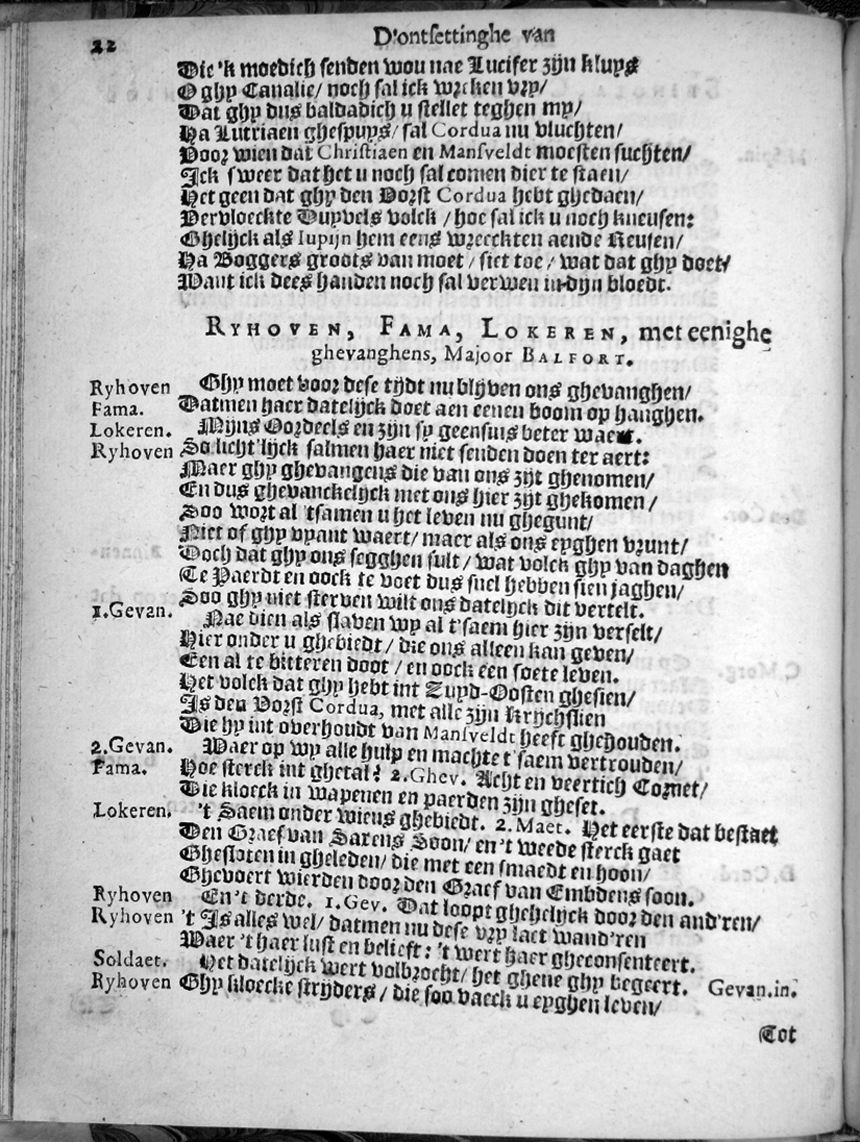 22 D'ontsettinghe van
Die 'k moedich senden wou nae Lucifer zijn kluys
O ghy Canalie/ noch sal ick wreken vry/
Dat ghy dus baldadich u stellet teghen my/
Ha Lutriaen ghespuys/ sal Cordua nu vluchten/
Voor wien dat Christiaen en Mansveldt moesten suchten/
Ick sweer dat het u noch sal comen dier te staen/
Het geen dat ghy den Vorst Cordua hebt ghedaen/
Vervloeckte Duyvels volck / hoe sal ick u noch kneusen:
Ghelijck als Iupijn hem eens wreeckten aende Reusen/
Ha Boggers groots van moet / siet toe / wat dat ghy doet/
Want ick dees handen noch sal verwen in dijn bloedt.
RYHOVEN, FAMA, LOKEREN, met eenighe
ghevanghens, Majoor BALFORT.
Ryhoven Ghy moet voor dese tijdt nu blijven ons ghevanghen/
Fama. Datmen haer datelijck doet aen eenen boom op hanghen.
Lokeren. Mijns Oordeels en zijn sy geensins beter waert.
Ryhoven So licht'lijck salmen haer niet senden doen ter aert:
Maer ghy ghevangens die van ons zijt ghenomen/
En dus ghevanckelijck met ons hier zijt ghekomen /
Soo wort al 'tsamen u het leven nu ghegunt/
Niet of ghy vyant waert/ maer als ons eyghen vrunt/
Doch dat ghy ons segghen sult / wat volck ghy van daghen
Te Paerdt en oock te voet dus snel hebben sien jaghen/
Soo ghy niet sterven wilt ons datelijck dit vertelt.
1.Gevan. Nae dien als slaven wy al t'saem hier zijn verselt/
Hier onder u ghebiedt / die ons alleen kan geven/
Een al te bitteren doot / en oock een soete leven.
Het volck dat ghy hebt int Zuyd-Oosten ghesien/
Is den Vorst Cordua, met alle zijn Krijchslien
Die hy int overhoudt van Mansveldt heeft ghehouden.
2.Gevan. Waer op wy alle hulp en machte t'saem vertrouden/
Fama. Hoe sterck int ghetal? 2.Ghev. Acht en veertich Cornet/
Die kloeck in wapenen en paerden zijn gheset.
Lokeren. 't Saem onder wiens ghebiedt. 2.Maet. Het eerste dat bestaet
Den Graef van Sarens Soon/ en 't weede sterck gaet
Ghesloten in gheleden/ die met een smaedt en hoon/
Ghevoert wierden door den Graef van Embdens soon.
Ryhoven En't derde. 1.Gev. Dat loopt ghehelijck door den and'ren/
Ryhoven 't Is alles wel/ datmen nu dese vry laet wand'ren
Waer 't haer lust en belieft: 't wert haer gheconsenteert.
Soldaet. Het datelijck wert volbrocht/ het ghene ghy begeert. Gevan.in.
Ryhoven Ghy kloecke strijders / die soo vaeck u eyghen leven/
Tot